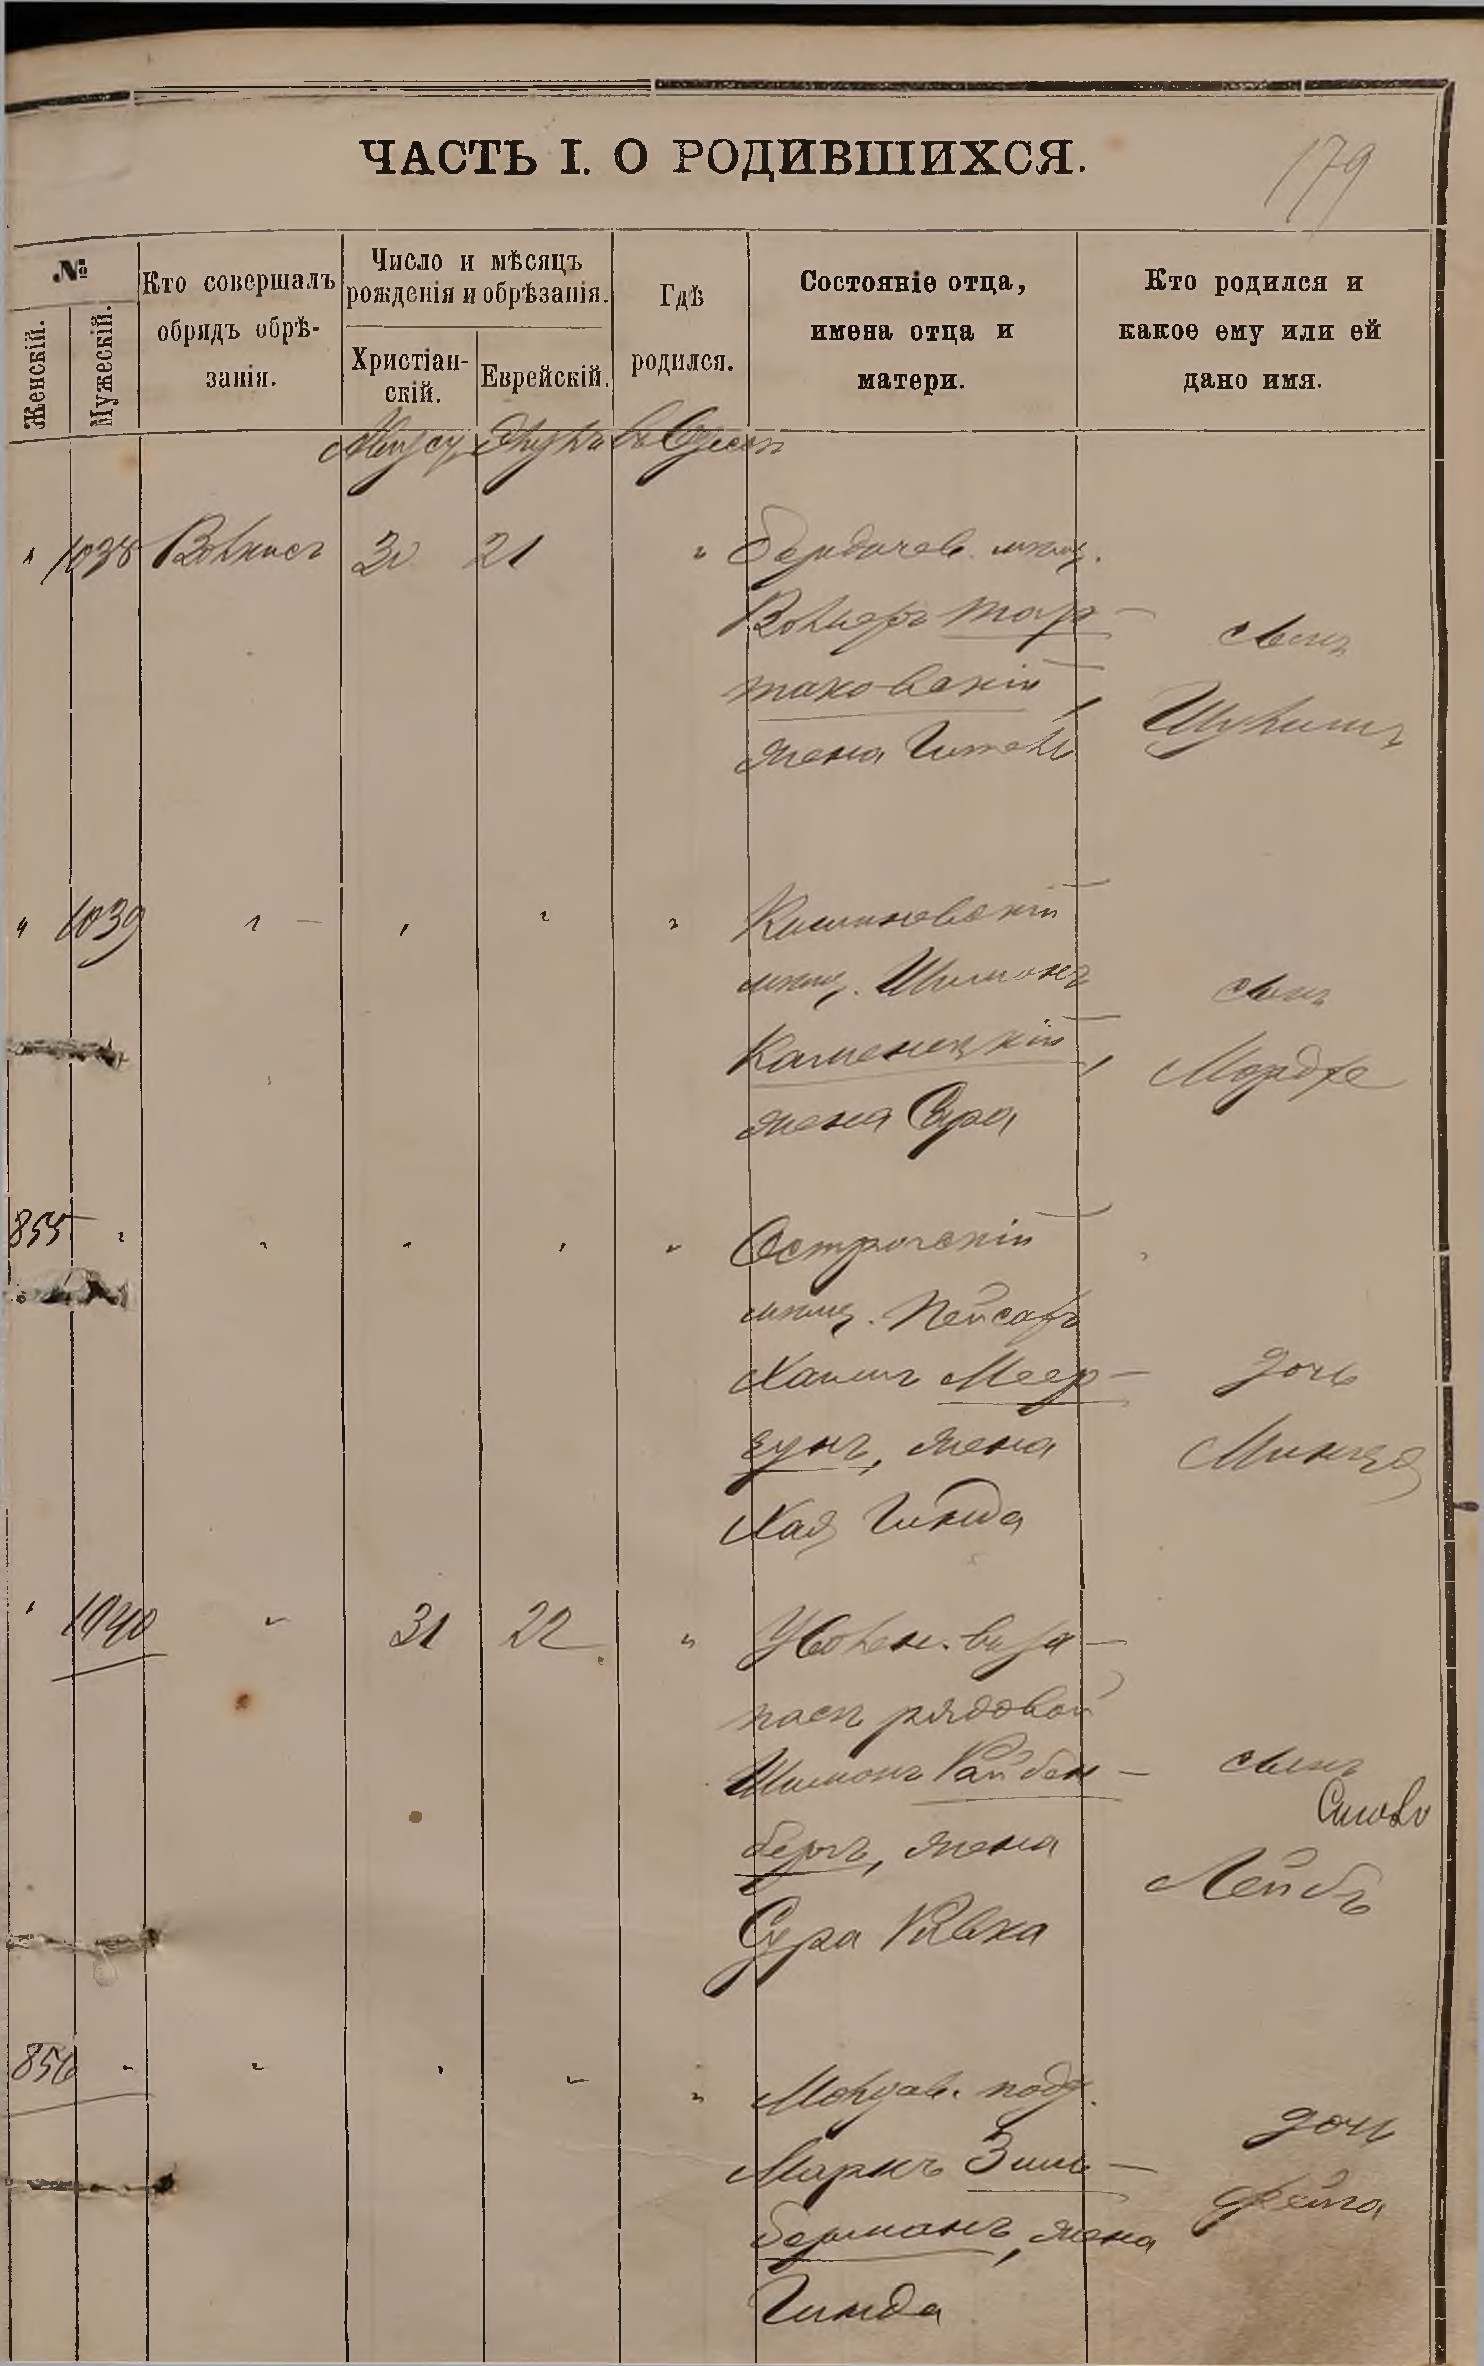 ЧАСТЬ I. О РОДИВШИХСЯ.
179
№
Женскій.
Мужескій.
Кто совершалъ
обрядъ обрѣ-
занія.
Число и мѣсяцъ
рожденія и обрѣзанія.
Христіан-
скій.
Еврейскій.
Гдѣ
родился.
Состояніе отца,
имена отца и
матери.
Кто родился и
какое ему или ей
дано имя.
Август въ Одессѣ
" 1038 30 21 " Бердичев. мѣщ.
Волькеръ Тар-
таковскій,
жена Гитель
сынъ
Шулимъ
" 1039 " - " " " Кишиневскій
мѣщ. Шимонъ
Каменецкій,
жена Сура
сынъ
Мордхе
855 " " " " " Острогскій
мѣщ. Пейсахъ
Хаимъ Меер-
зунъ, жена
Хая Гинда
дочь
Минця
" 1040 " 31 22 " Уволен. въ за-
пасъ рядовой
Шимонъ Вайсбен-
бергъ, жена
Сура Ривка
сынъ
Лейбъ
856 " " " " " Молдав. подд.
Маркъ Зиль-
берманъ, жена
Гинда
дочь
Фейга